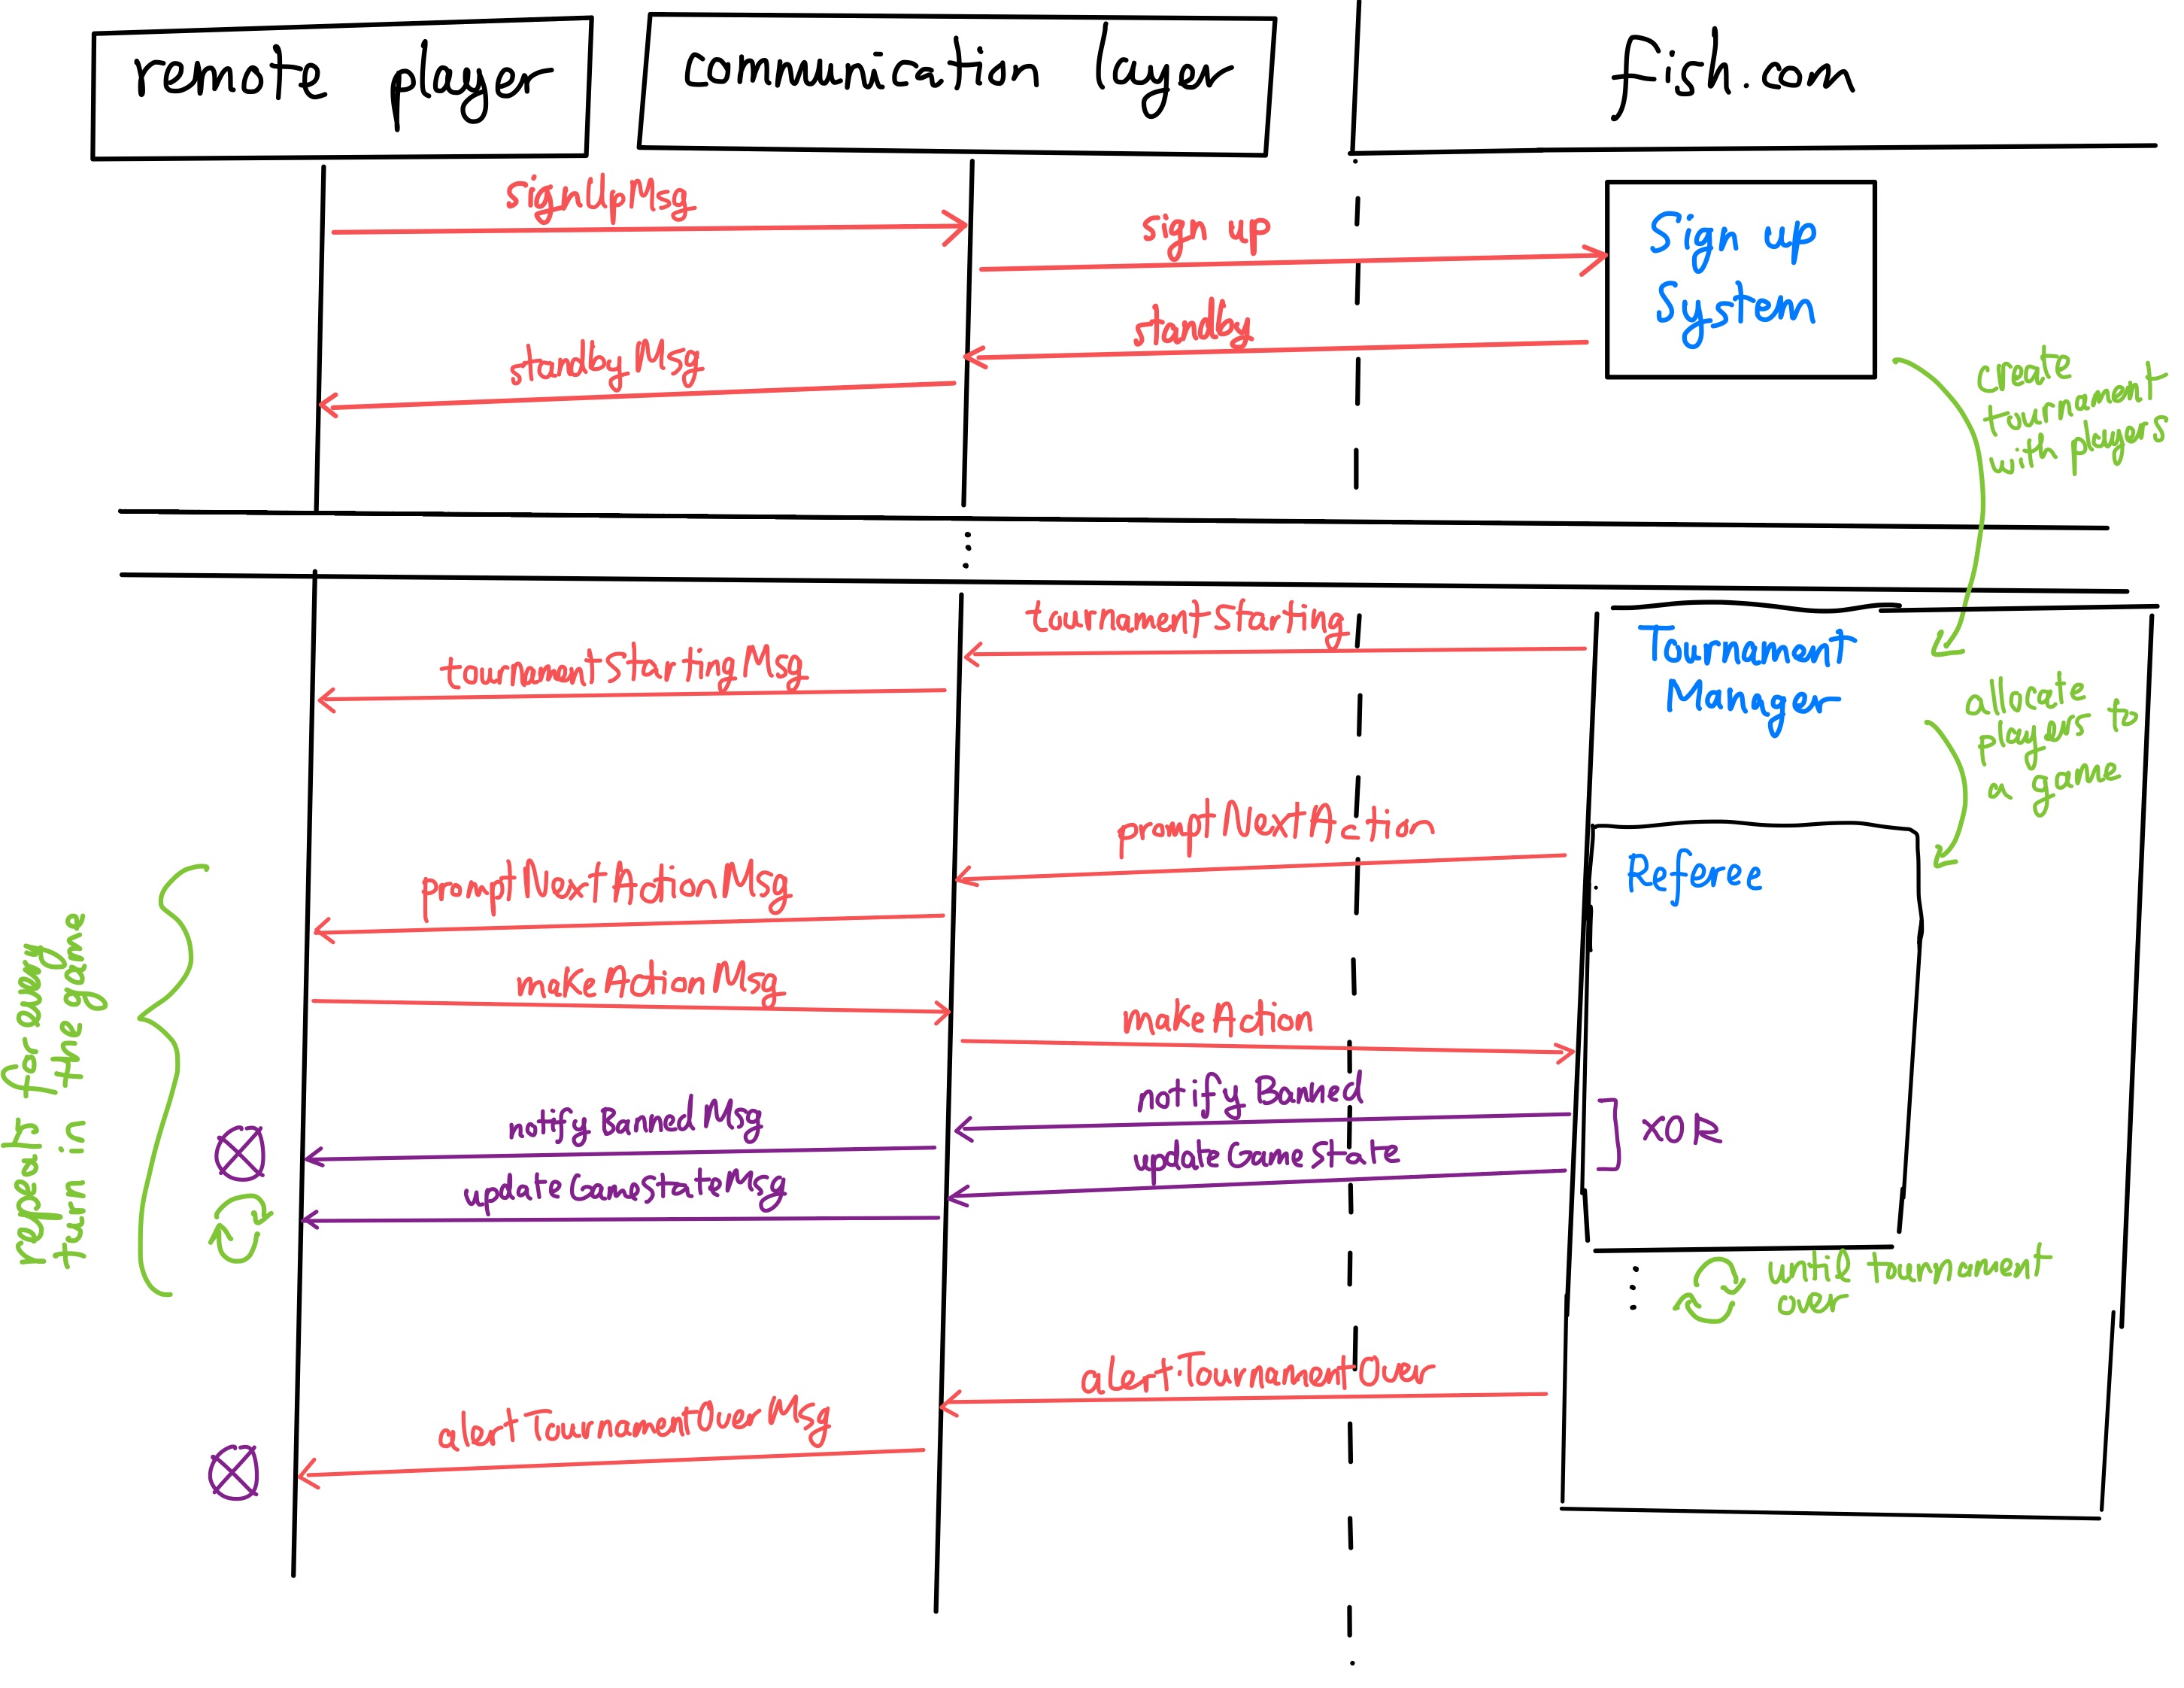 remote player
communication layer
fish.com
signUpMsg
sign up
Sign up
System
standby
standbyMsg
create
tournament
with players
tournamentStarting
tournamentStartingMsg
Tournament
Manager
allocate
players to
a game
promptNextAction
promptNextActionMsg
Referee
makeActionMsg
makeAction
repeat for every
turn in the game
notifyBanned
notifyBannedMsg
XOR
updateGameState
updateGameStateMsg
until tournament
over
alertTournamentOver
alertTournamentOverMsg